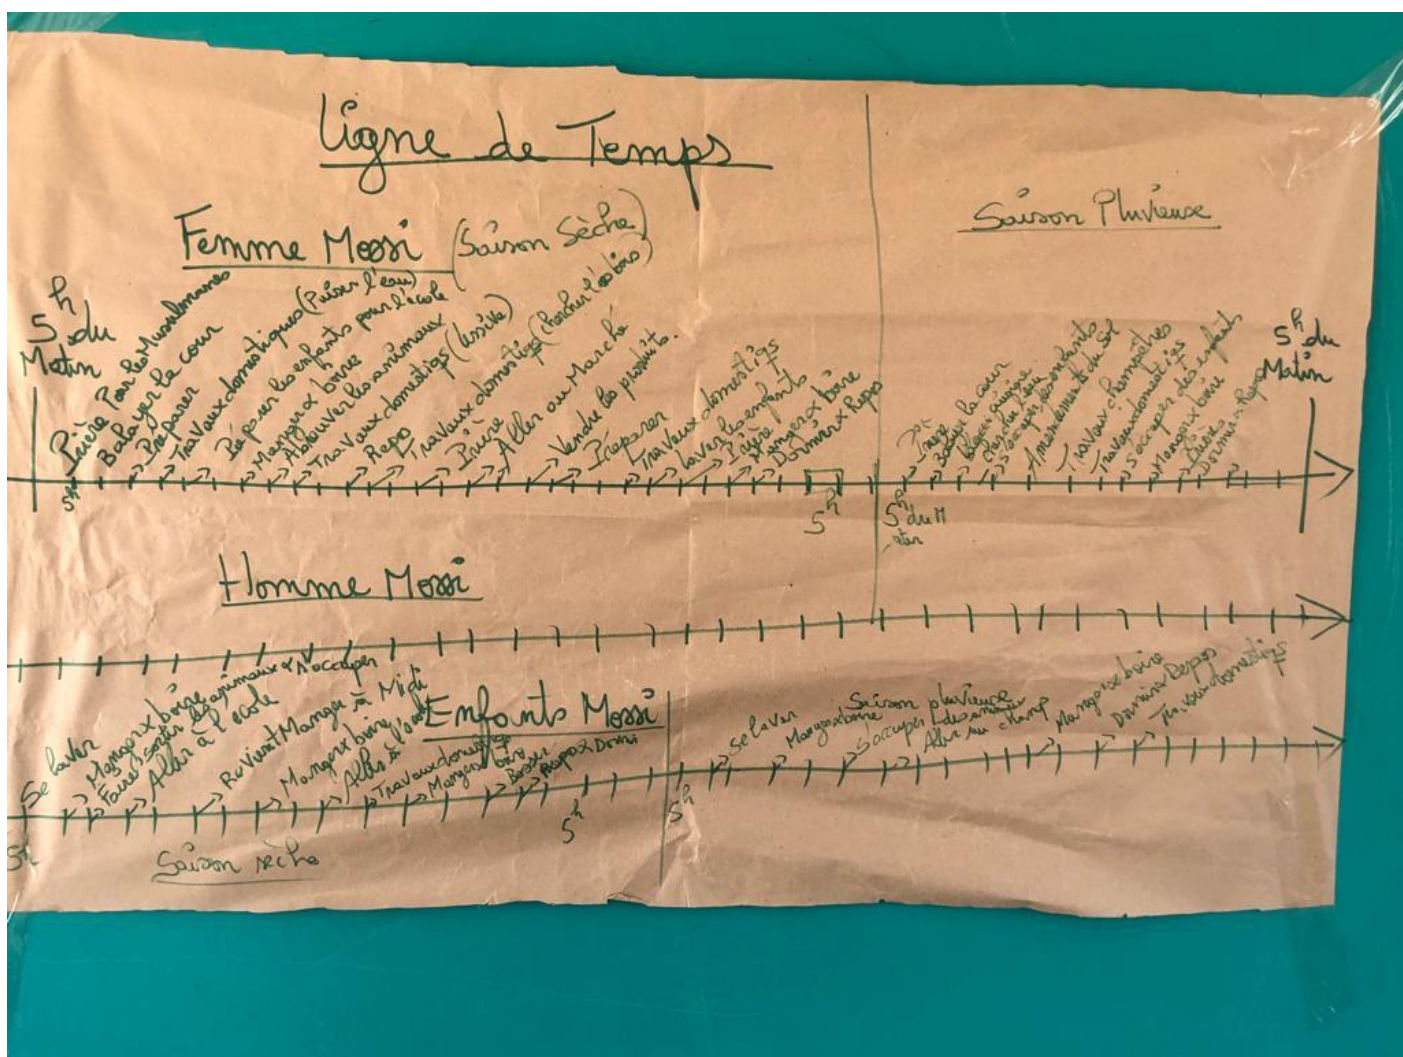 Ligne de Temps
Femme Mossi (Saison Sèche)
Saison Pluvieuse
5h du
Matin
Prière Pour les Musulmanes
Balayer la cour
Préparer
Travaux domestiques (Puiser l'eau)
Préparer les enfants pour l'école
Manger & boire
Abreuver les animaux
Travaux domestiqs (lessive)
Repo
Travaux domestiqs (chercher le bois)
Prière
Aller au Marché
Vendre les produits.
Préparer
Travaux domestiqs
Laver les enfants
Prière
Manger & boire
Dormir & Repos
5h
5h
5h du M
atin
Balayer la cour
S'occuper des enfants
Aménagement du Sol
Travaux champêtres
Travaux domestiqs
S'occuper des enfants
Manger & boire
Dormir & Repos
5h du
Matin
Homme Mossi
Enfants Mossi
5h
Se laver
Manger & boire
Faire sortir les animaux & s'occuper
Aller à l'école
Revient Manger à Midi
Manger & boire
Aller à l'école
Travaux domestiqs
Manger & boire
Repos & Dormi
5h
Saison sèche
5h
Saison pluvieuse
Se laver
Manger & boire
S'occuper des animaux
Aller au champ
Manger & boire
Dormir & Repos
Travaux domestiqs